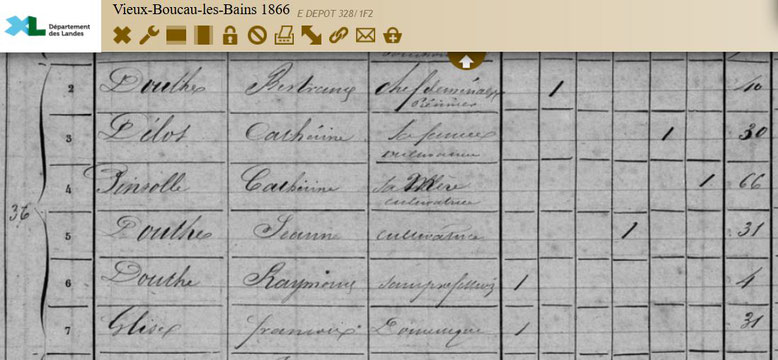 Vieux-Boucau-les-Bains 1866 E DEPOT 328/1F2
Département
des Landes
2 Douthe Bertrand chef de ménage 1 40
3 Délos Catherine sa femme 1 30
cultivatrice
4 Pinsolle Catherine sa Mère 1 66
cultivatrice
36
5 Douthe Jeanne cultivatrice 1 31
6 Douthe Raymond sans profession 1 4
7 Glize francois Domestique 1 31